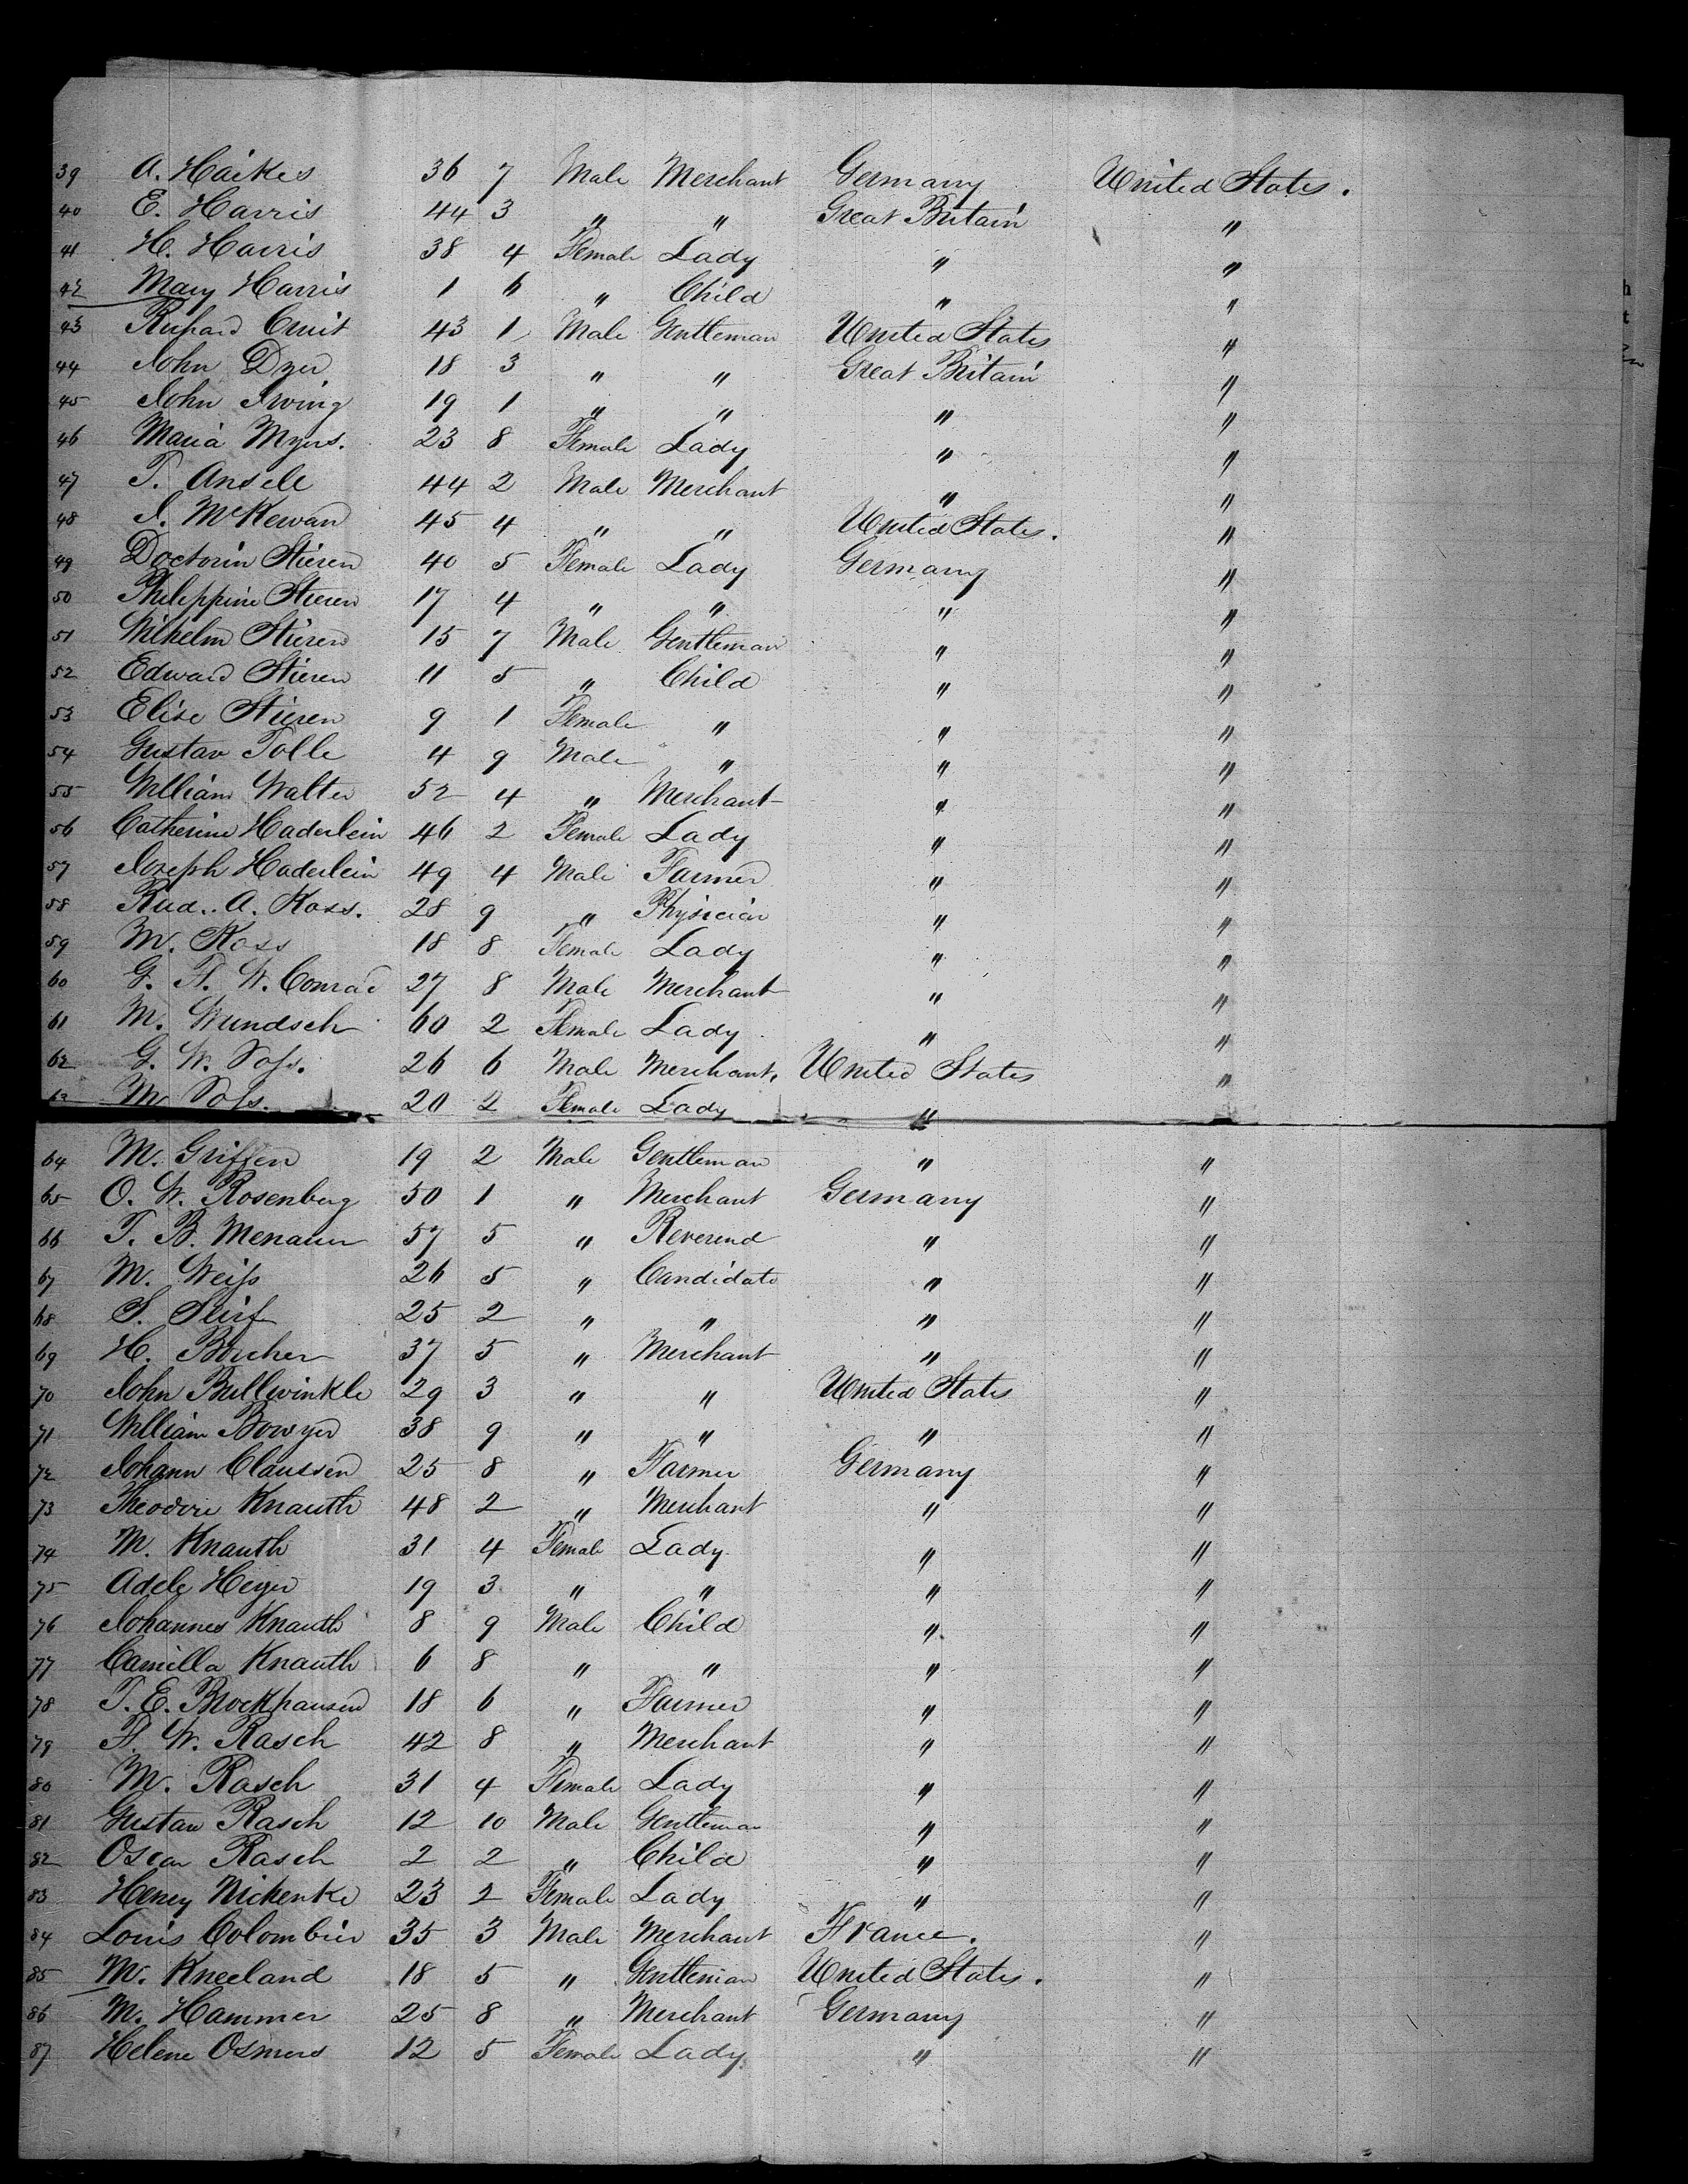 39 A. Haikes 36 7 Male Merchant Germany United States.
40 E. Harris 44 3 " " Great Britain "
41 H. Harris 38 4 Female Lady " "
42 Mary Harris 1 6 " Child " "
43 43 1 Male Gentleman United States "
44 John Dyer 18 3 " " Great Britain "
45 John Irving 19 1 " " " "
46 Maria Myers. 23 8 Female Lady " "
47 T. Ansele 44 2 Male Merchant " "
48 J. McKewan 45 4 " " United States. "
49 Doctorin Stieren 40 5 Female Lady Germany "
50 Philippine Stieren 17 4 " " " "
51 Wilhelm Stieren 15 7 Male Gentleman " "
52 Edward Stieren 11 5 " Child " "
53 Elise Stieren 9 1 Female " " "
54 Gustav Tolle 4 9 Male " " "
55 William Walter 52 4 " Merchant " "
56 Catherine Haderlein 46 2 Female Lady " "
57 Joseph Haderlein 49 4 Male Farmer " "
58 Rud. A. Koss. 28 9 " Physician " "
59 M. Koss 18 8 Female Lady " "
60 G. F. W. Conrad 27 8 Male Merchant " "
61 M. Wundsch 60 2 Female Lady " "
62 G. W. 26 6 Male Merchant. United States "
63 M. 20 2 Female Lady "
64 M. Griffen 19 2 Male Gentleman " "
65 O. W. Rosenberg 50 1 " Merchant Germany "
66 T. B. Menauer 57 5 " Reverend " "
67 M. Weiss 26 5 " Candidate " "
68 S. 25 2 " " " "
69 H. Borcher 37 5 " Merchant " "
70 John Bullwinkle 29 3 " " United States "
71 William Bowyer 38 9 " " " "
72 Johann Claussen 25 8 " Farmer Germany "
73 Theodore Knauth 48 2 " Merchant " "
74 M. Knauth 31 4 Female Lady " "
75 Adele Heyer 19 3 " " " "
76 Johannes Knauth 8 9 Male Child " "
77 Camilla Knauth 6 8 " " " "
78 T. E. Brockhausen 18 6 " Farmer " "
79 F. W. Rasch 42 8 " Merchant " "
80 M. Rasch 31 4 Female Lady " "
81 Gustav Rasch 12 10 Male Gentleman " "
82 Oscar Rasch 2 2 " Child " "
83 Henry Nickenke 23 2 Female Lady " "
84 Louis Colombier 35 3 Male Merchant France. "
85 M. Kneeland 18 5 " Gentleman United States. "
86 M. Hammer 25 8 " Merchant Germany "
87 Helene Osmers 12 5 Female Lady " "